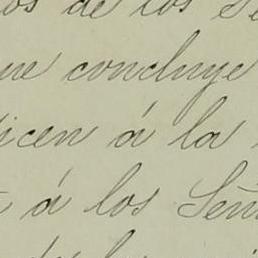 de los
concluye
dicen á la
á los Señ